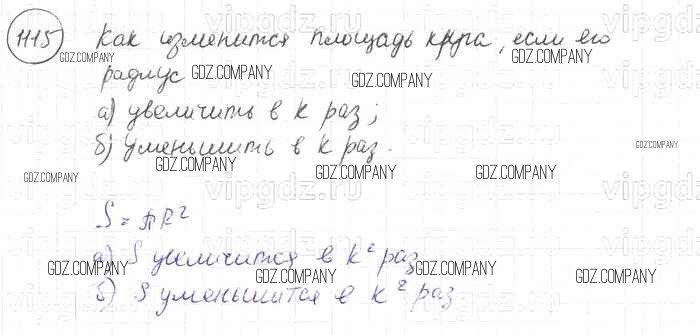 1115 Как изменится площадь круга, если его
радиус
а) увеличить в k раз;
б) уменьшить в k раз.
S = πR²
а) S увеличится в k² раз
б) S уменьшится в k² раз
GDZ.COMPANY
vipgdz.ru